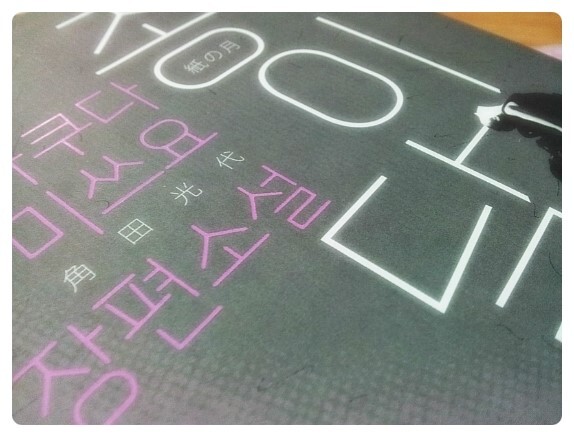 종이달
紙の月
가쿠다
미쓰요
角田光代
장편소설